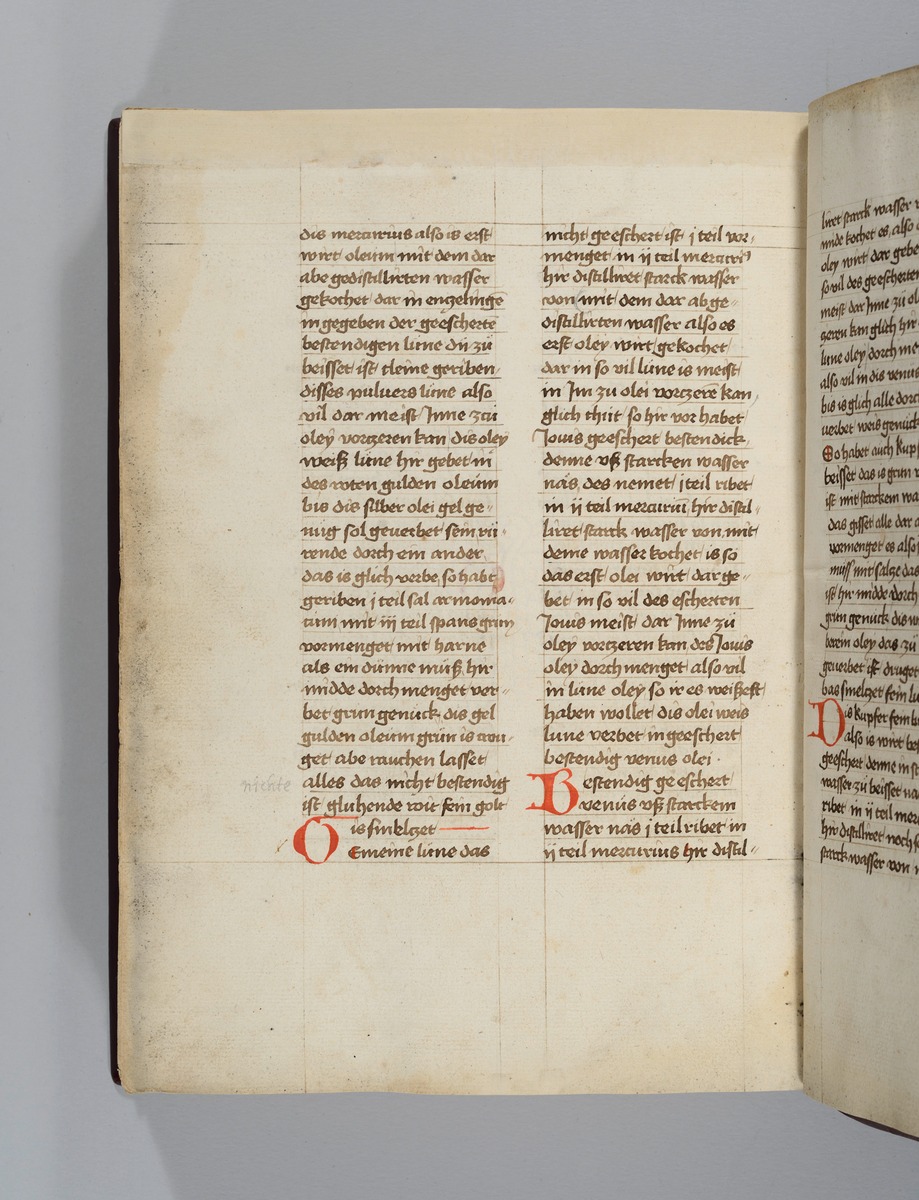 dis mercurius also is erst
wirt oleum mit dem dar
abe gedistillirten wasser
gekochet dar in enzelinge
in gegeben der geescherte
bestendigen lune dy zu
beisset ist cleine geriben
disses pulvers lune also
vil dar meist Inne zcu
oley vorczeren kan dis oley
weiß lune hir gebet in
des roten gulden oleum
bis dis silber olei gel ge-
nug sol geverbet sein rü-
rende dorch ein ander
das is glich verbe so habt
geriben j teil sal armonia-
cum mit iij teil spansgrun
vormenget mit harne
als ein dunne muß hir
midde dorch menget ver-
bet grun genuck dis gel
gulden oleum grun is tru-
get abe rauchen lasset
nichte
alles das nicht bestendig
ist gluhende wirt fein golt
is smelczet
Gemeine lune das
nicht geeschert ist j teil vor-
menget in ij teil mercurij
hir distilliret starck wasser
von mit dem dar abge-
distillirten wasser also es
erst oley wirt gekochet
dar in so vil lune is meist
in Im zu olei vorczere kan
glich thut so hir vor habet
Jovis geeschert bestendick
denne uß starcken wasser
nas des nemet j teil ribet
in ij teil mercurii hir distil-
liret starck wasser von mit
deme wasser kochet is so
das erst olei wirt dar ge-
bet in so vil des escherten
Jovis meist dar Inne zu
oley vorczeren kan des Jovis
oley dorch menget also vil
in lune oley so ir es weißest
haben wollet dis olei weis
lune verbet in geeschert
bestendig venus olei
Bestendig geeschert
venus uß starckem
wasser nas j teil ribet in
ij teil mercurius hir distil-
liret starck wasser
unde kochet es also
oley wirt dar gebe
so vil des geescherten
meist dar Inne zu ol
zeren kan glich hir
lune oley dorch me
also vil in dis venus
bis is glich alle dorc
verbet weis genuck
So habet auch kupf
beisset das is grun
ist mit starckem wa
das gisset alle dar
vormenget es also
muß mit salcze das
ist hir midde dorch
grun genuck dis
berein oley das zu
geverbet ist druget
bas smelczet fein lu
Dis kupfer fein
also is wirt be
geeschert denne in st
wasser zu beisset na
ribet in ij teil mer
hir distilliret noch
starck wasser von